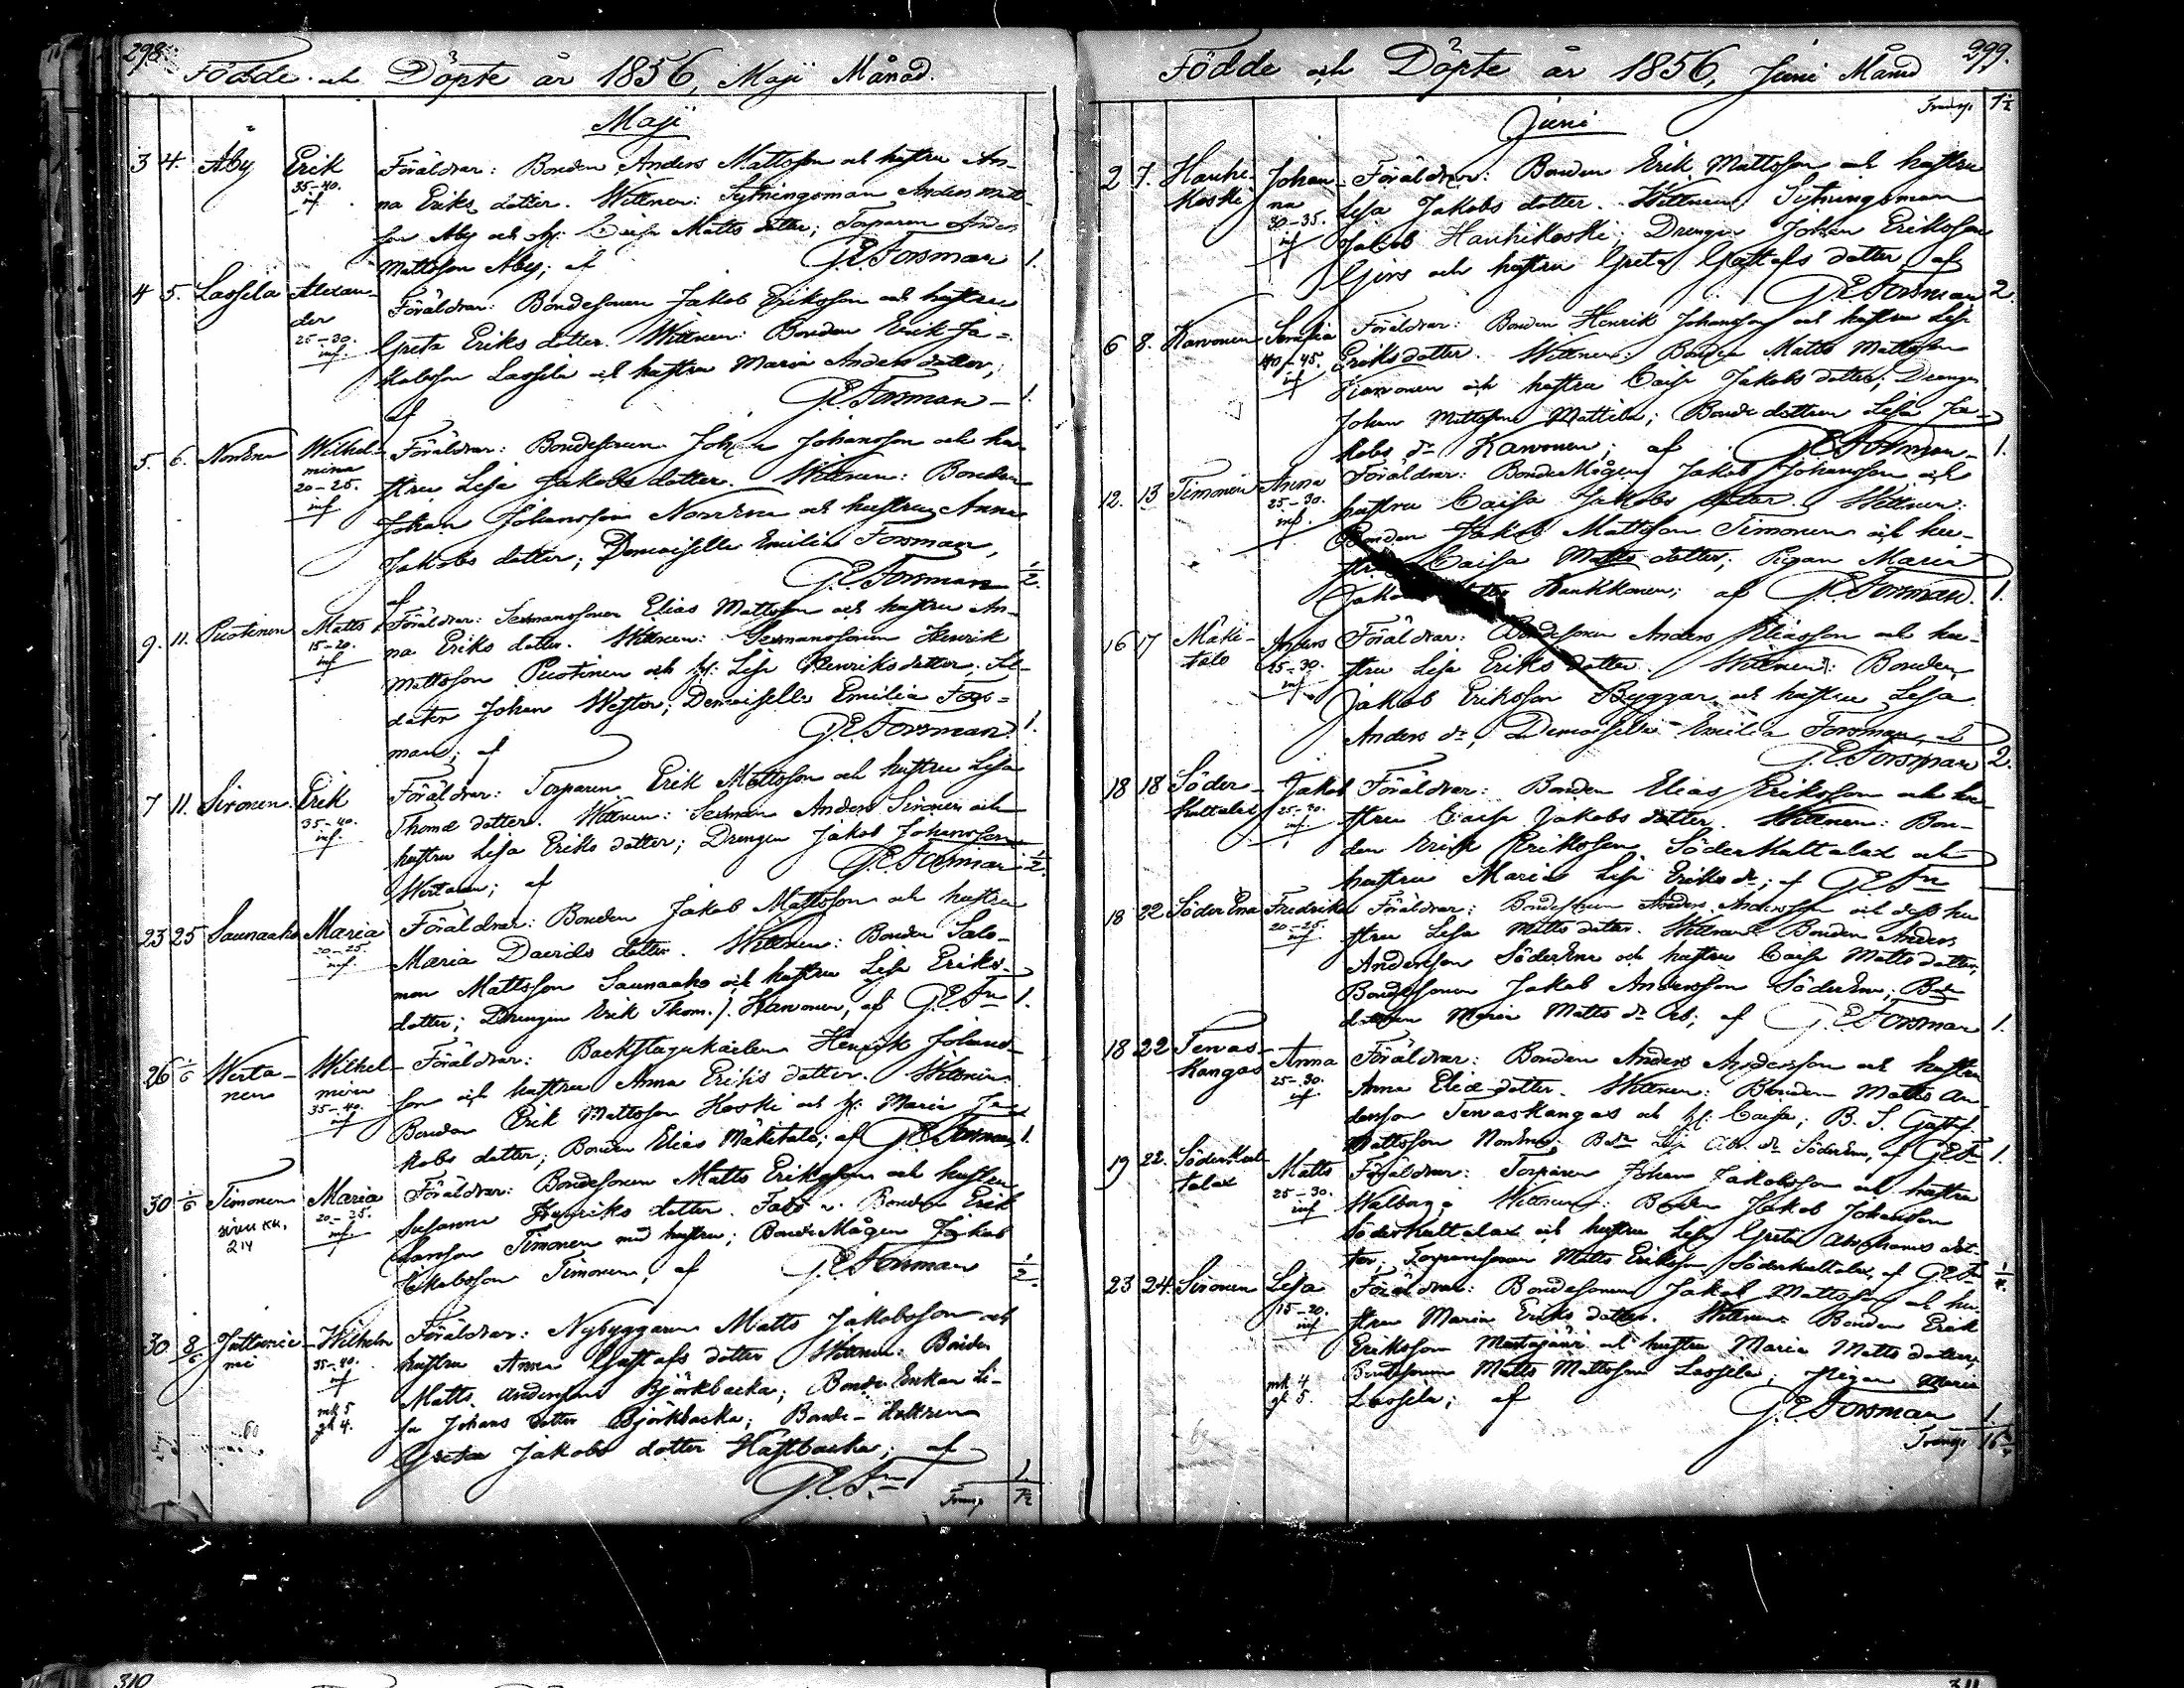 298.
Födde och Döpte år 1856, Maji Månad.
Maji
3 4. Åby Erik Föräldrar: Bonden Anders Mattsson och hustru An-
35-40. inf. na Eriks dotter. Wittnen: Sytningsman Anders Matts-
son Åby och h: Caisa Matts dotter; Torparen Anders
Mattsson Åby; af G.E. Forsman 1.
4 5. Lassila Alexan- Föräldrar: Bondesonen Jakob Eriksson och hustru
der 25-30. inf. Greta Eriks dotter. Wittnen: Bonden Erik Ja-
kobsson Lassila och hustru Maria Anders dotter;
af G.E. Forsman 1.
5. 6. Norrena Wilhel- Föräldrar: Bondesonen Johan Johansson och hu-
mina 20-25. inf stru Lisa Jakobs dotter. Wittnen: Bonden
Johan Johansson Norrena och hustru Anna
Jakobs dotter; Demoiselle Emilia Forsman,
af G.E. Forsman 1/2.
9. 11. Puotinen Matts Föräldrar: Sexmanssonen Elias Mattsson och hustru An-
15-20. inf na Eriks dotter. Wittnen: Sexmanssonen Henrik
Mattsson Puotinen och h: Lisa Henriks dotter; Sol-
daten Johan Wester; Demoiselle Emilia Fors-
man; af G.E. Forsman 1.
7 11. Sironen. Erik Föräldrar: Torparen Erik Mattsson och hustru Lisa
35-40. inf. Thomæ dotter. Wittnen: Sexman Anders Sironen och
hustru Lisa Eriks dotter; Drengen Jakob Johansson
Wertanen; af G.E. Forsman 1/2.
23 25 Saunaaho Maria Föräldrar: Bonden Jakob Mattsson och hustru
20-25. inf. Maria Davids dotter. Wittnen: Bonden Salo-
mon Mattsson Saunaaho och hustru Lisa Eriks
dotter; Drengen Erik Thom. s. Karvonen, af G.E. Fn 1.
26 1/6 Werta- Wilhel- Föräldrar: Backstugukarlen Henrik Johans-
nen mina 35-40. inf son och hustru Anna Eriks dotter. Wittnen:
Bonden Erik Mattsson Koski och h: Maria Ja-
kobs dotter; Bonden Elias Mäkitalo; af G.E. Forsman 1.
30 1/6 Timonen Maria Föräldrar: Bondesonen Matts Eriksson och hustru
20-25. inf. Susanna Henriks dotter. Bonden Erik
214 Larsson Timonen med hustru; BondeMågen Jakob
Jakobsson Timonen, af G.E. Forsman 1/2
30 8/6 Wilhelm Föräldrar: Nybyggaren Matts Jakobsson och
35-40. inf hustru Anna Gustafs dotter Wittnen: Bonden
mk 5 Matts Andersson Björkbacka; Bonde Enkan Li-
qk 4. sa Johans dotter Björkbacka; Bonde-dottren
Greta Jakobs dotter Hästbacka; af
G.E. Fn 1
Transp 7 1/2
299.
Födde och Döpte år 1856, Juni Månad
Transp. 7 1/2
Juni
2 7. Hauki- Johan- Föräldrar: Bonden Erik Mattsson och hustru
koski na 30-35. inf Lisa Jakobs dotter. Wittnen: Sytningsman
Jakob Haukikoski; Drengen Johan Eriksson
Gers och hustru Greta Gustafs dotter, af
G.E. Forsman 2.
6 8. Karvonen Serafia Föräldrar: Bonden Henrik Johansson och hustru Lisa
40-45. inf Eriksdotter. Wittnen: Bonden Matts Mattsson
Karvonen och hustru Caisa Jakobs dotter; Drengen
Johan Mattsson Mattila; Bonde dottren Lisa Ja-
kobs dr Karvonen; af G.E. Forsman 1.
12. 13 Timonen Anna Föräldrar: BondeMågen Jakob Johansson och
25-30. inf. hustru Caisa Jakobs dotter. Wittnen:
Bonden Jakob Mattsson Timonen och hu-
stru Caisa Matts dotter; Pigan Maria
Jakobs dotter Haukkanen; af G.E. Forsman. 1.
16 17 Mäki- Anders Föräldrar: Bondesonen Anders Eliasson och hu-
talo 25-30. inf. stru Lisa Eriks dotter. Wittnen: Bonden
Jakob Eriksson Byggar och hustru Lisa
Anders dr; Demoiselle Emilia Forsman, af
G.E. Forsman 2.
18 18 Söder- Jakob Föräldrar: Bonden Elias Eriksson och hu-
kultalax 25-30. inf. stru Caisa Jakobs dotter. Wittnen: Bon-
den Erik Eriksson Söderkultalax och
hustru Maria Lisa Eriks dr; af G.E. Fn
18 22 SöderEna Fredrika Föräldrar: Bondesonen Anders Andersson och dess hu
20-25. inf. stru Lisa Matts dotter. Wittnen: Bonden Anders
Andersson SöderEna och hustru Caisa Matts dotter,
Bondesonen Jakob Andersson SöderEna; Bde
dottren Maria Matts dr; af G.E. Forsman 1.
18 22 Terwas- Anna Föräldrar: Bonden Anders Andersson och hustru
kangas 25-30. inf. Anna Eliæ dotter. Wittnen: Bonden Matts An-
dersson Terwaskangas och h: Caisa; B. S. Gustaf
Mattsson Norrena. Lisa Abr. dr SöderEna, af G.E. Fn 1.
19 22. Söderkul- Matts Föräldrar: Torparen Johan Jakobsson och hustru
talax 25-30. inf Walborg. Wittnen: Bonden Jakob Johansson
Söderkultalax och hustru Lisa Greta Abrahams dot-
ter, Torparesonen Matts Eriksson Söderkultalax, af G.E. Fn
23 24. Sironen Lisa Föräldrar: Bondesonen Jakob Mattsson och hu-
15-20. inf stru Maria Eriks dotter. Wittnen: Bonden Erik
Eriksson Mustajärvi och hustru Maria Matts dotter;
mk 4 Bondesonen Matts Mattsson Lassila; Pigan Maria
qk 5. Lassila; af G.E. Forsman 1.
Transp
310
311